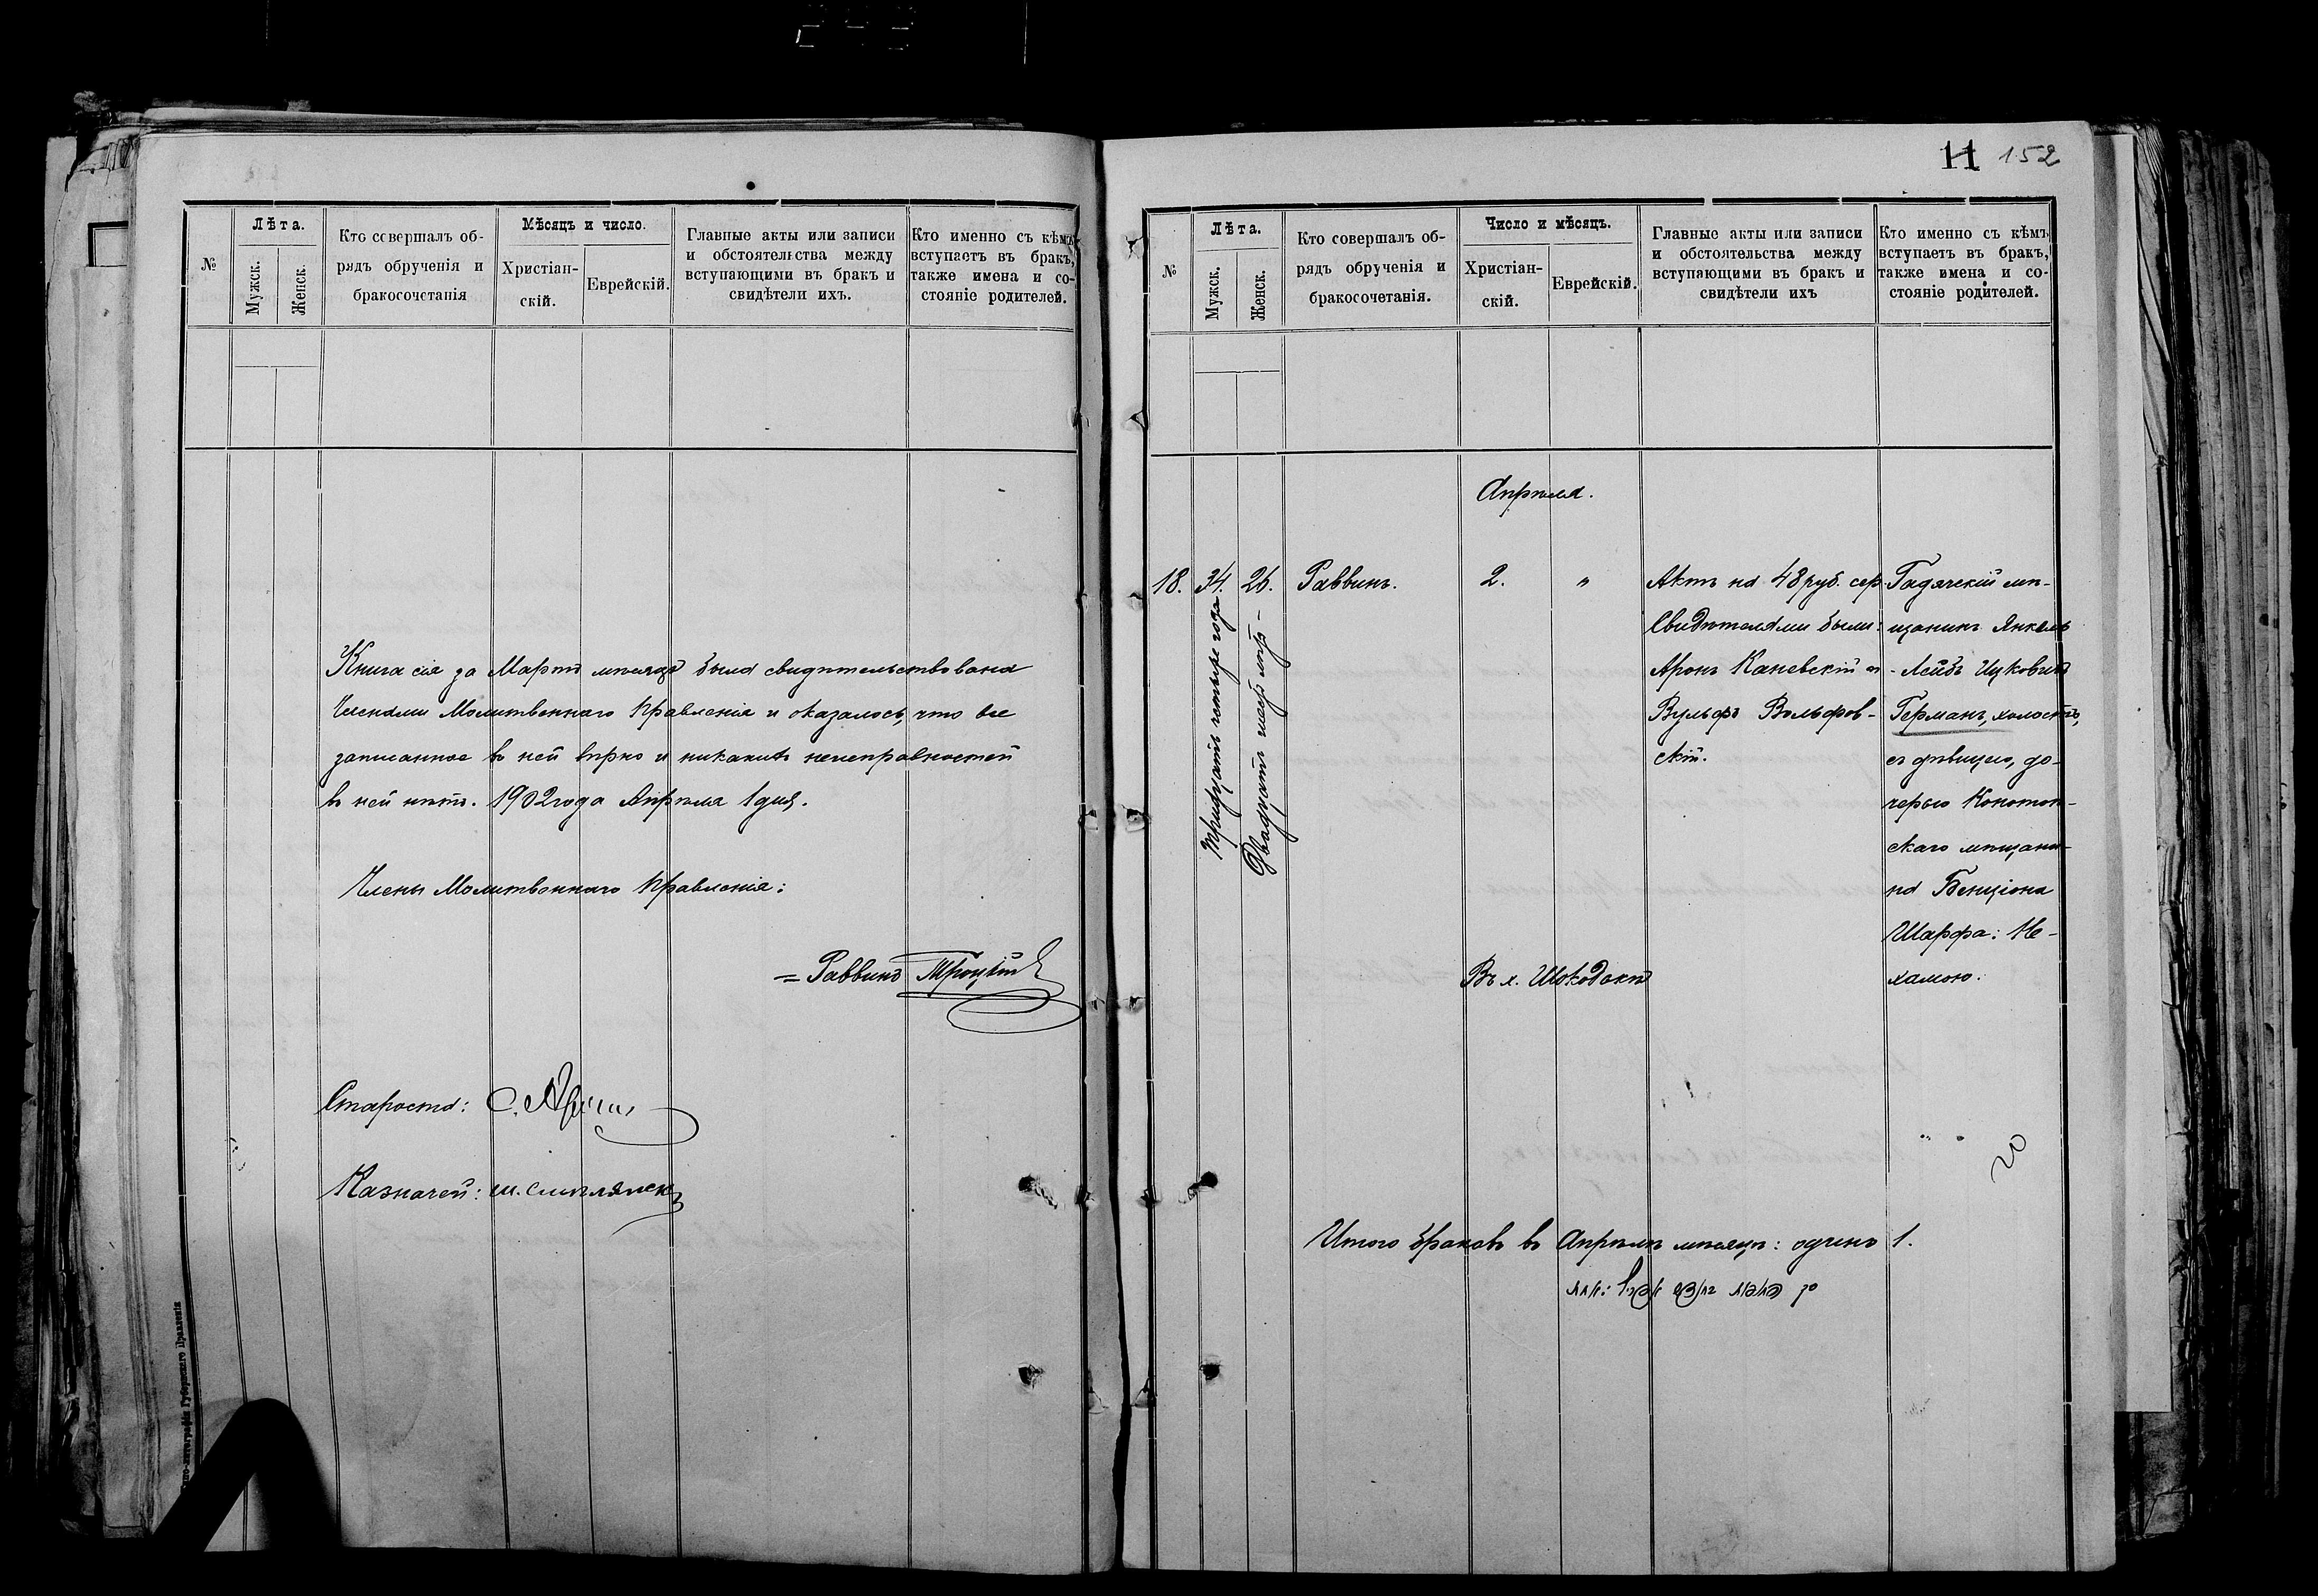 №
Лѣта.
Мужск.
Женск.
Кто совершалъ об-
рядъ обрученія и
бракосочетанія
Мѣсяцъ и число.
Христіан-
скій.
Еврейскій.
Главные акты или записи
и обстоятельства между
вступающими въ бракъ и
свидѣтели ихъ.
Кто именно съ кѣмъ
вступаетъ въ бракъ,
также имена и со-
стояніе родителей.
Книга сія за Мартъ мѣсяцъ была свидѣтельствована
Членами Молитвеннаго Правленія и оказалось, что все
записанное въ ней вѣрно и никакихъ неисправностей
въ ней нѣтъ. 1902 года Апрѣля 1 дня.
Члены Молитвеннаго Правленія:
= Раввинъ Троцкій
Староста: С.
Казначей: Ш.
11 152
№
Лѣта.
Мужск.
Женск.
Кто совершалъ об-
рядъ обрученія и
бракосочетанія.
Число и мѣсяцъ.
Христіан-
скій.
Еврейскій.
Главные акты или записи
и обстоятельства между
вступающими въ бракъ и
свидѣтели ихъ
Кто именно съ кѣмъ
вступаетъ въ бракъ,
также имена и со-
стояніе родителей.
Апрѣля.
18.
34.
Тридцать четыре года
26.
Двадцать шесть лѣтъ -
Раввинъ.
2.
"
Въ х.
Актъ на 48 руб. сер.
Свидѣтелями были:
Аронъ Каневскій и
Вульфъ Вольфов-
скій.
Гадячскій мѣ-
щанинъ Янкель
- Лейбъ Ицковичъ
Германъ, холостъ,
съ дѣвицею, до-
черью Конотоп-
скаго мѣщани-
на Бенціона
Шарфа: Не-
хамою.
20
Итого браковъ въ Апрѣлѣ мѣсяцѣ: одинъ 1.